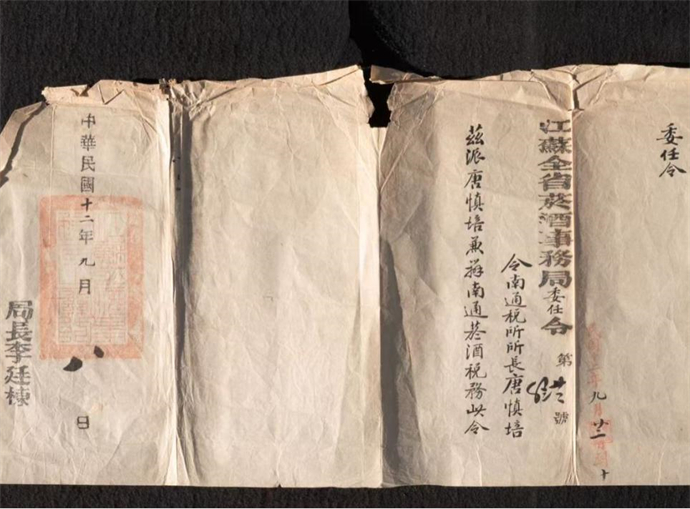 委任令
九月廿二
十
江蘇全省菸酒事務局委任令 第 號
令南通稅所所長唐慎培
茲派唐慎培兼辦南通菸酒稅務此令
中華民國十二年九月 八 日
局長李廷棟